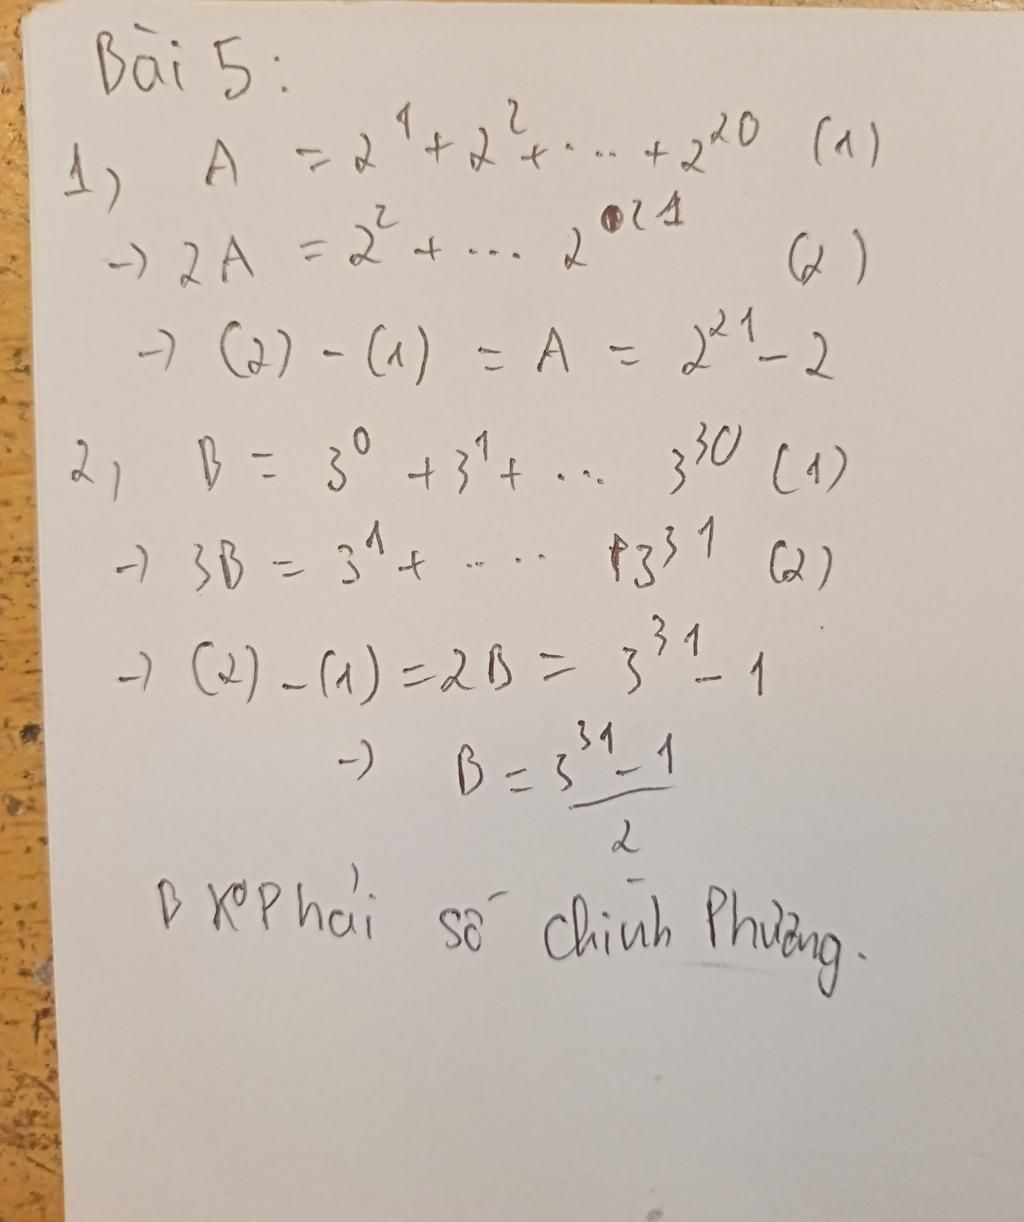 Bài 5:
1) A = 2¹ + 2² + ... + 2²⁰ (1)
→ 2A = 2² + ... 2²¹ (2)
→ (2) - (1) = A = 2²¹ - 2
2, B = 3⁰ + 3¹ + ... 3³⁰ (1)
→ 3B = 3¹ + .... + 3³¹ (2)
→ (2) - (1) = 2B = 3³¹ - 1
→ B = (3³¹ - 1)/2
B K⁰ Phải số chính Phương.